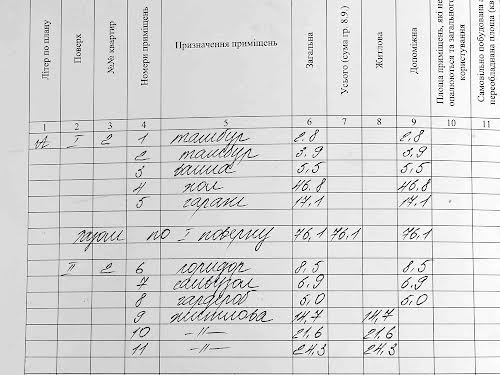 Літер по плану
Поверх
№№ квартир
Номери приміщень
Призначення приміщень
Загальна
Усього (сума гр. 8.9.)
Житлова
Допоміжна
Площа приміщень, які не
опалюються та загального
користування
Самовільно побудована
переобладнана площа
1 2 3 4 5 6 7 8 9 10 11
А I 2 1 тамбур 2,8 2,8
2 тамбур 3,9 3,9
3 5,5 5,5
4 хол 46.8 46.8
5 гараж 17,1 17,1
по I поверху 76,1 76,1 76.1
II 2 6 коридор 8,5 8,5
7 санвузол 6,9 6,9
8 гардероб 5,0 5,0
9 житлова 14,7 14,7
10 -"- 21,6 21,6
11 -"- 24,3 24,3